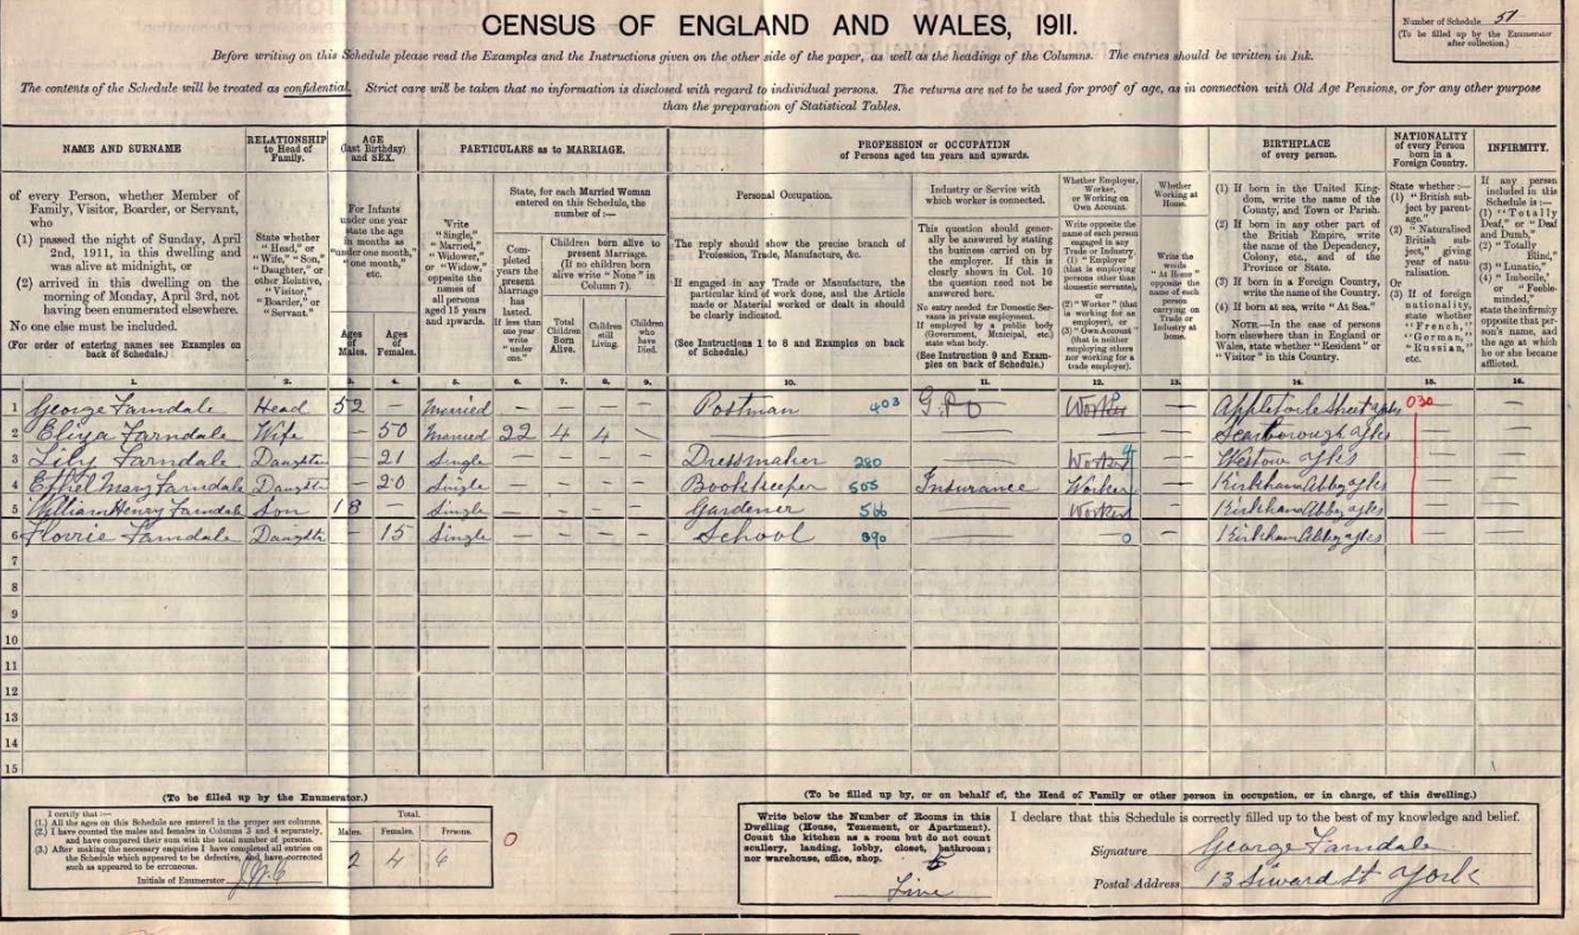 CENSUS OF ENGLAND AND WALES, 1911.
Number of Schedule 51
(To be filled up by the Enumerator
after collection.)
Before writing on this Schedule please read the Examples and the Instructions given on the other side of the paper, as well as the headings of the Columns. The entries should be written in Ink.
The contents of the Schedule will be treated as confidential. Strict care will be taken that no information is disclosed with regard to individual persons. The returns are not to be used for proof of age, as in connection with Old Age Pensions, or for any other purpose
than the preparation of Statistical Tables.
NAME AND SURNAME
of every Person, whether Member of
Family, Visitor, Boarder, or Servant,
who
(1) passed the night of Sunday, April
2nd, 1911, in this dwelling and
was alive at midnight, or
(2) arrived in this dwelling on the
morning of Monday, April 3rd, not
having been enumerated elsewhere.
No one else must be included.
(For order of entering names see Examples on
back of Schedule.)
RELATIONSHIP
to Head of
Family.
State whether
"Head," or
"Wife," "Son,"
"Daughter," or
other Relative,
"Visitor,"
"Boarder," or
"Servant."
AGE
(last Birthday)
and SEX.
For Infants
under one year
state the age
in months as
"under one month,"
"one month,"
etc.
Ages
of
Males.
Ages
of
Females.
PARTICULARS as to MARRIAGE.
Write
"Single,"
"Married,"
"Widower,"
or "Widow,"
opposite the
names of
all persons
aged 15 years
and upwards.
State, for each Married Woman
entered on this Schedule, the
number of:—
Com-
pleted
years the
present
Marriage
has
lasted.
If less than
one year
write
"under
one."
Children born alive to
present Marriage.
(If no children born
alive write "None" in
Column 7).
Total
Children
Born
Alive.
Children
still
Living.
Children
who
have
Died.
PROFESSION or OCCUPATION
of Persons aged ten years and upwards.
Personal Occupation.
The reply should show the precise branch of
Profession, Trade, Manufacture, &c.
If engaged in any Trade or Manufacture, the
particular kind of work done, and the Article
made or Material worked or dealt in should
be clearly indicated.
(See Instructions 1 to 8 and Examples on back
of Schedule.)
Industry or Service with
which worker is connected.
This question should gener-
ally be answered by stating
the business carried on by
the employer. If this is
clearly shown in Col. 10
the question need not be
answered here.
No entry needed for Domestic Ser-
vants in private employment.
If employed by a public body
(Government, Municipal, etc.)
state what body.
(See Instruction 9 and Exam-
ples on back of Schedule.)
Whether Employer,
Worker,
or Working on
Own Account.
Write opposite the
name of each person
engaged in any
Trade or Industry,
(1) "Employer"
(that is employing
persons other than
domestic servants),
or
(2) "Worker" (that
is working for an
employer), or
(3) "Own Account"
(that is neither
employing others
nor working for a
trade employer).
Whether
Working at
Home.
Write the
words
"At Home"
opposite the
name of each
person
carrying on
Trade or
Industry at
home.
BIRTHPLACE
of every person.
(1) If born in the United King-
dom, write the name of the
County, and Town or Parish.
(2) If born in any other part of
the British Empire, write
the name of the Dependency,
Colony, etc., and of the
Province or State.
(3) If born in a Foreign Country,
write the name of the Country.
(4) If born at sea, write "At Sea."
NOTE—In the case of persons
born elsewhere than in England or
Wales, state whether "Resident" or
"Visitor" in this Country.
NATIONALITY
of every Person
born in a
Foreign Country.
State whether:—
(1) "British sub-
ject by parent-
age."
(2) "Naturalised
British sub-
ject," giving
year of natu-
ralisation.
Or
(3) If of foreign
nationality,
state whether
"French,"
"German,"
"Russian,"
etc.
INFIRMITY.
If any person
included in this
Schedule is:—
(1) "Totally
Deaf," or "Deaf
and Dumb,"
(2) "Totally
Blind,"
(3) "Lunatic,"
(4) "Imbecile,"
or "Feeble-
minded,"
state the infirmity
opposite that per-
son's name, and
the age at which
he or she became
afflicted.
1. 2. 3. 4. 5. 6. 7. 8. 9. 10. 11. 12. 13. 14. 15. 16.
1 George Farndale Head 52 — Married — — — — Postman 403 G.P.O Worker — 030 — —
2 Eliza Farndale Wife — 50 Married 22 4 4 — — — — Scarborough Yks — —
3 Lily Farndale Daughter — 21 Single — — — — Dressmaker 280 — Worker — Westow Yks — —
4 Ethel Mary Farndale Daughter — 20 Single — — — — Bookkeeper 505 Insurance Worker — Kirkham Abbey Yks — —
5 William Henry Farndale Son 18 Single — — — — Gardener 566 — Worker — Kirkham Abbey Yks — —
6 Florrie Farndale Daughter — 15 Single — — — — School 390 — 0 — Kirkham Abbey Yks — —
7
8
9
10
11
12
13
14
15
(To be filled up by the Enumerator.)
I certify that:—
(1.) All the ages on this Schedule are entered in the proper sex columns.
(2.) I have counted the males and females in Columns 3 and 4 separately,
and have compared their sum with the total number of persons.
(3.) After making the necessary enquiries I have completed all entries on
the Schedule which appeared to be defective, and have corrected
such as appeared to be erroneous.
Initials of Enumerator
Total.
Males. Females. Persons.
2 4 6
0
(To be filled up by, or on behalf of, the Head of Family or other person in occupation, or in charge, of this dwelling.)
Write below the Number of Rooms in this
Dwelling (House, Tenement, or Apartment).
Count the kitchen as a room but do not count
scullery, landing, lobby, closet, bathroom;
nor warehouse, office, shop.
5
Five
I declare that this Schedule is correctly filled up to the best of my knowledge and belief.
Signature George Farndale
Postal Address 13 Siward St York